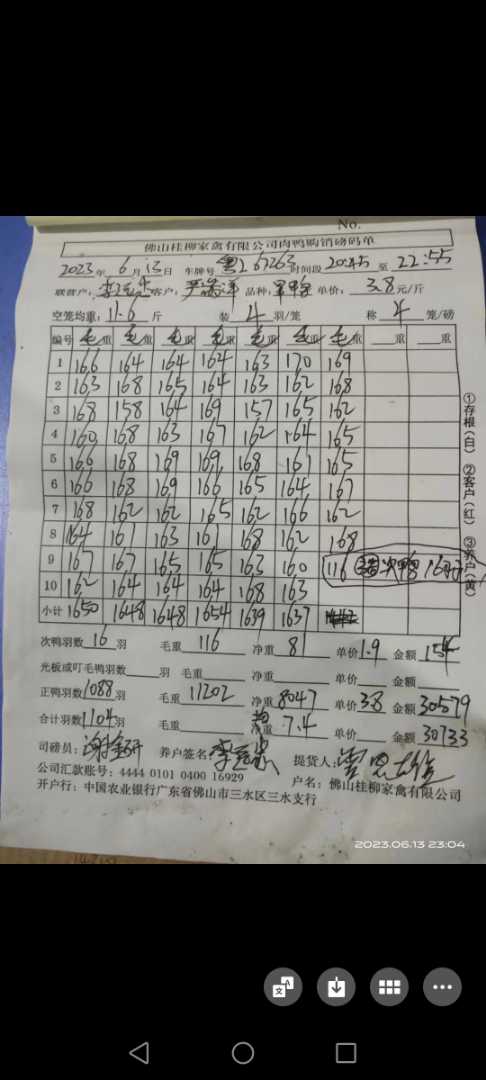 No.
佛山桂柳家禽有限公司肉鸭购销磅码单
2023年 6月13日 车牌号 粤 67263 时间段 20:45 至 22:55
联营户： 客户： 品种： 单价：3.8元/斤
空笼均重：11.6 斤 装 4 羽/笼 称 4 笼/磅
编号 毛重 毛重 毛重 毛重 毛重 毛重 毛重 重 重
1 166 164 164 164 163 170 169
2 163 168 165 164 163 162 168
3 168 158 164 169 157 165 162
4 160 168 163 167 162 164 165
5 166 168 169 169 168 161 165
6 166 168 169 166 165 164 167
7 168 162 162 165 162 166 162
8 164 161 163 161 168 162 168
9 167 167 165 165 163 160 116 次鸭 16羽
10 162 164 164 164 168 163
小计 1650 1648 1648 1654 1639 1637
①存根（白） ②客户（红） ③养户（黄）
次鸭羽数 16 羽 毛重 116 净重 81 单价 1.9 金额 154
光板或叮毛鸭羽数 羽 毛重 净重 单价 金额
正鸭羽数 1088 羽 毛重 11202 净重 8047 单价 3.8 金额 30579
合计羽数 1104 羽 毛重 均 7.4 单价 金额 30733
司磅员： 养户签名： 提货人：
公司汇款账号：4444 0101 0400 16929 户名：佛山桂柳家禽有限公司
开户行：中国农业银行广东省佛山市三水区三水支行
2023.06.13 23:04